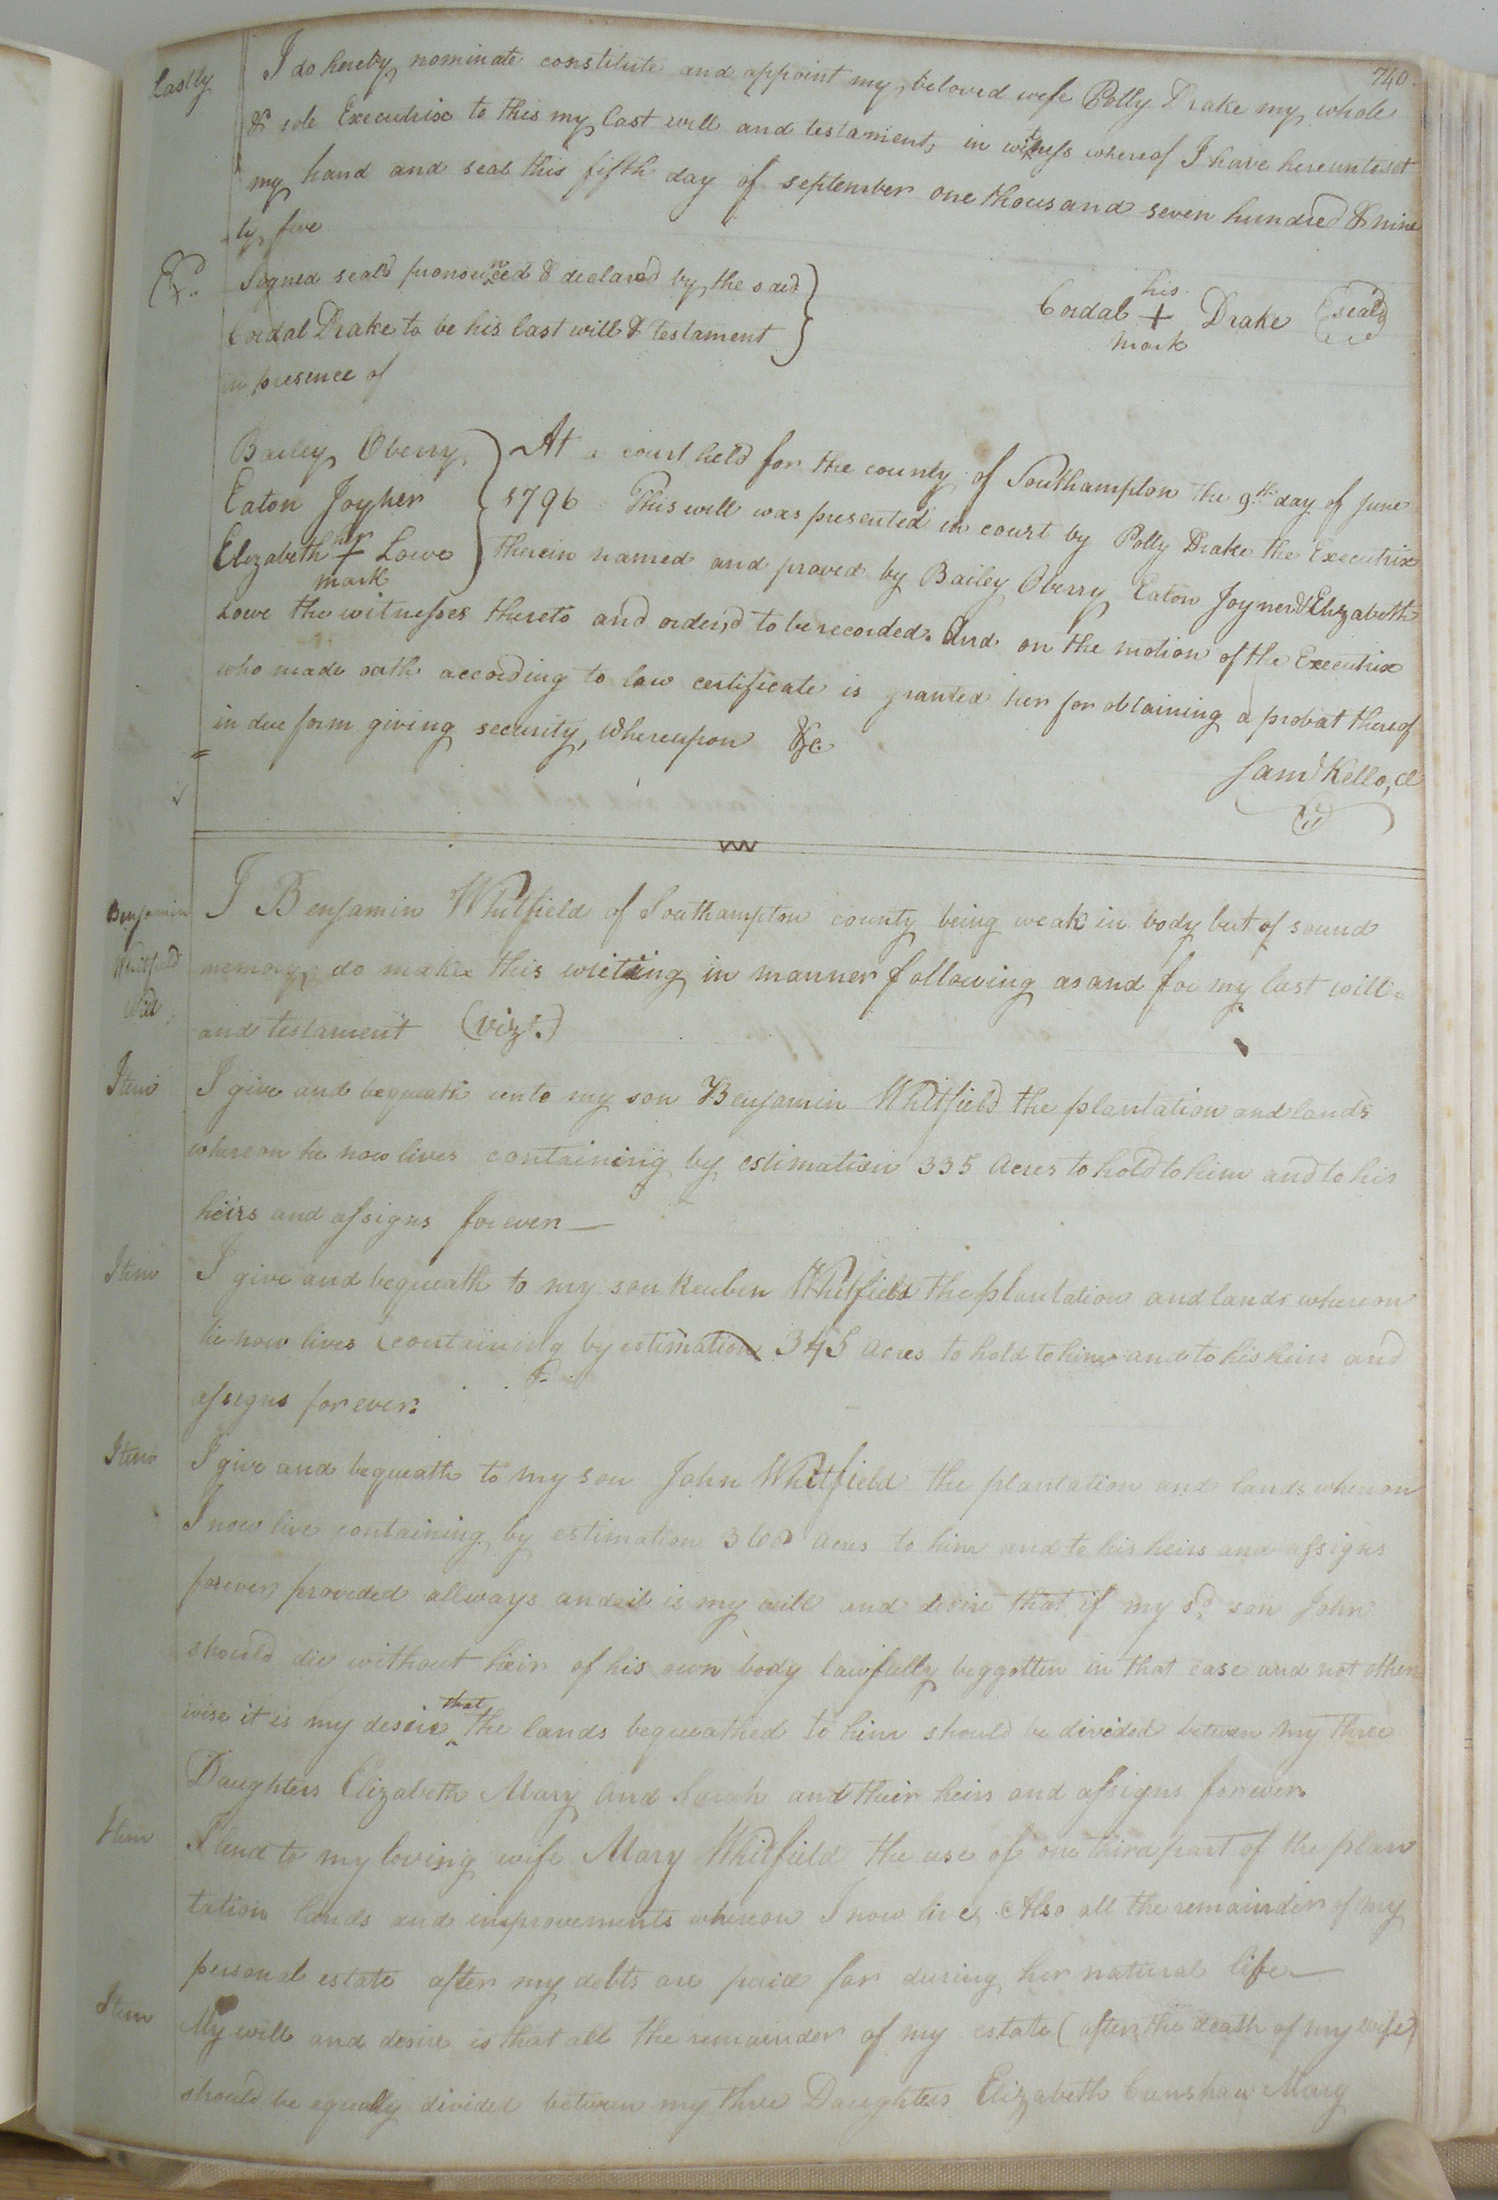 740.
Lastly I do hereby nominate constitute and appoint my beloved wife Polly Drake my whole
& sole Executrix to this my last will and testament, in witness whereof I have hereunto set
my hand and seal this fifth day of september one thousand seven hundred & nine
-ty five
Signed seald pronounced & declared by the said
Cordal Drake to be his last will & Testament
in presence of
his
Cordal + Drake (seald)
mark
Bailey Oberry
Eaton Joyner
Elizabeth her + Lowe
mark
At a court held for the county of Southampton the 9th day of June
1796 This will was presented in court by Polly Drake the Executrix
therein named and proved by Bailey Oberry Eaton Joyner & Elizabeth
Lowe the witnesses thereto and orderd to be recorded. And on the motion of the Executrix
who made oath according to law certificate is granted her for obtaining a probat thereof
in due form giving security, Whereupon &c
Saml Kello, Cl
Benjamin
Whitfield
Will
I Benjamin Whitfield of Southampton county being weak in body but of sound
memory do make this writing in manner following as and for my last will
and testament (vizt.)
Item I give and bequeath unto my son Benjamin Whitfield the plantation and lands
whereon he now lives containing by estimation 335 Acres to hold to him and to his
heirs and assigns forever —
Item I give and bequeath to my son Reuben Whitfield the plantation and lands whereon
he now lives containing by estimation 345 acres to hold to him and to his heirs and
assigns forever.
Item I give and bequeath to my son John Whitfield the plantation and lands whereon
I now live containing by estimation 360 acres to him and to his heirs and assigns
forever, provided allways and it is my will and desire that if my sd. son John
should die without heir of his own body lawfully beggotten in that case and not other
wise it is my desire that the lands bequeathed to him should be divided between my three
Daughters Elizabeth Mary and Sarah and their heirs and assigns forever.
Item I lend to my loving wife Mary Whitfield the use of one third part of the plan
tation lands and improvements whereon I now live, Also all the remainder of my
personal estate after my debts are paid for during her natural life —
Item My will and desire is that all the remainder of my estate (after the death of my wife)
should be equally divided between my three Daughters Elizabeth Crenshaw Mary